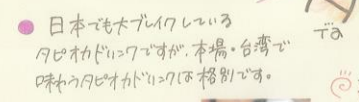 日本でも大ブレイクしている
タピオカドリンクですが、本場・台湾で
味わうタピオカドリンクは格別です。